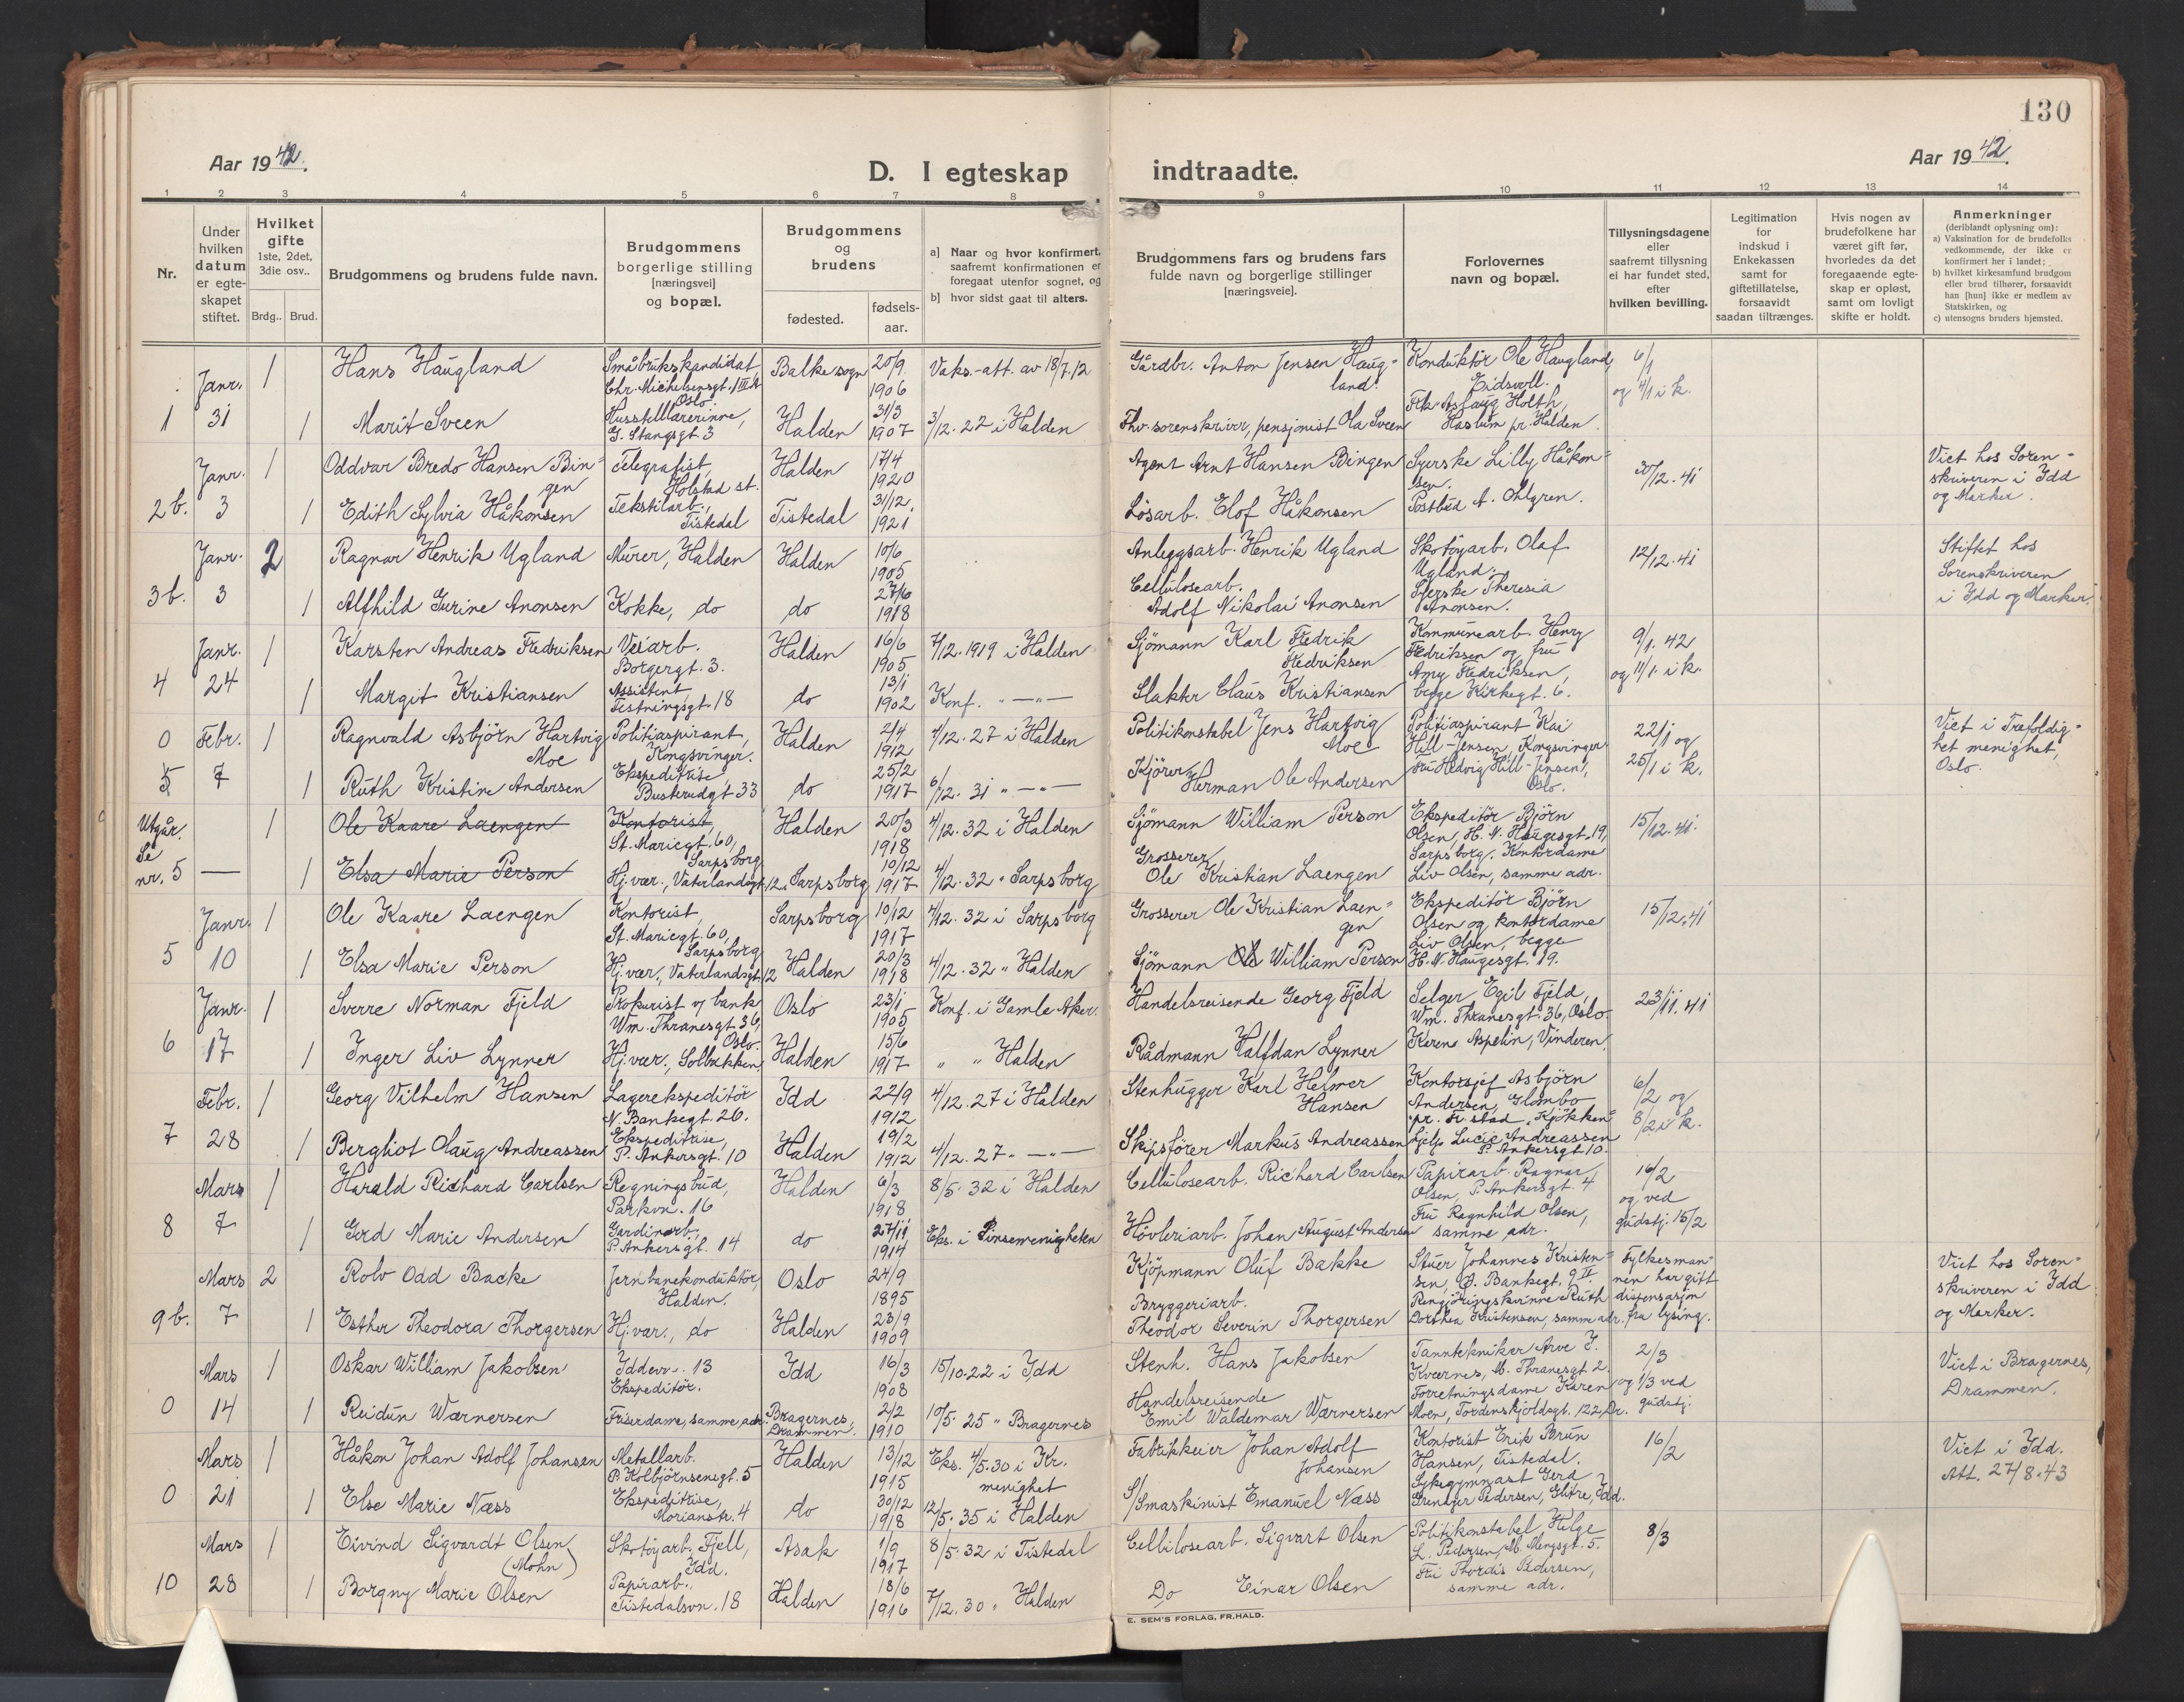 130
Aar 1942.
D. I egteskap indtraadte.
Aar 1942.
1 2 3 4 5 6 7 8 9 10 11 12 13 14
Nr.
Under hvilken datum er egteskapet stiftet.
Hvilket gifte 1ste, 2det, 3die osv..
Brdg.. Brud.
Brudgommens og brudens fulde navn.
Brudgommens borgerlige stilling [næringsvei] og bopæl.
Brudgommens og brudens
fødested.
fødselsaar.
a) Naar og hvor konfirmert, saafremt konfirmationen er foregaat utenfor sognet, og
b) hvor sidst gaat til alters.
Brudgommens fars og brudens fars fulde navn og borgerlige stillinger [næringsveie].
Forlovernes navn og bopæl.
Tillysningsdagene eller saafremt tillysning ei har fundet sted, efter hvilken bevilling.
Legitimation for indskud i Enkekassen samt for giftetillatelse, forsaavidt saadan tiltrænges.
Hvis nogen av brudefolkene har været gift før, hvorledes da det foregaaende egteskap er opløst, samt om lovligt skifte er holdt.
Anmerkninger (deriblandt oplysning om):
a) Vaksination for de brudefolks vedkommende, der ikke er konfirmert her i landet;
b) hvilket kirkesamfund brudgom eller brud tilhører, forsaavidt han [hun] ikke er medlem av Statskirken, og
c) utensogns bruders hjemsted.
Janr. 1 Hans Haugland Småbrukskandidat Chr. Michelsensgt. 1 III Oslo. Balke sogn 20/9 1906 Vaks.-att. av 18/7.12 Gårdbr. Anton Jensen Haugland. Konduktör Ole Haugland, Eidsvoll. 6/1 og 4/1 i k.
1 31 1 Marit Sveen Husstellærerinne, G. Stangsgt. 3 Halden 31/3 1907 3/12. 22 i Halden Fhv. sorenskriver, pensjonist Ola Sveen Frk. Aslaug Holth, Haslum pr. Halden.
Janr. 1 Oddvar Bredo Hansen Bingen Telegrafist, Holstad st. Halden 17/4 1920 Agent Arnt Hansen Bingen Syerske Lilly Håkonsen. 30/12. 41 Viet hos Sorenskriveren i Idd og Marker.
2 b. 3 1 Edith Sylvia Håkonsen Tekstilarb., Tistedal Tistedal 31/12. 1921 Lösarb. Elof Håkonsen Postbud A. Ohlgren.
Janr. 2 Ragnar Henrik Ugland Murer, Halden Halden 10/6 1905 Anleggsarb. Henrik Ugland Skotöyarb. Olaf Ugland. 12/12. 41 Stiftet hos Sorenskriveren i Idd og Marker.
3 b. 3 1 Alfhild Gurine Aronsen Kokke, do do 27/6 1918 Cellulosearb. Adolf Nikolai Aronsen Syerske Theresia Aronsen.
Janr. 1 Karsten Andreas Fredriksen Veiarb. Borgergt. 3. Halden 16/6 1905 7/12. 1919 i Halden Sjömann Karl Fredrik Fredriksen Kommunearb. Henry Fredriksen og fru 9/1. 42
4 24 1 Margit Kristiansen Assistent Festningsgt. 18 do 13/1 1902 Konf. " — " — Slakter Claus Kristiansen Amy Fredriksen, begge Kirkegt. 6. og 11/1. i k.
0 Febr. 1 Ragnvald Asbjörn Hartvig Moe Politiaspirant, Kongsvinger. Halden 2/4 1912 4/12. 27 i Halden Politikonstabel Jens Hartvig Moe Politiaspirant Kai Hill-Jensen, Kongsvinger 22/1 og Viet i Trefoldighet menighet, Oslo.
5 7 1 Ruth Kristine Andersen Ekspeditrise, Busterudgt. 33 do 25/2 1917 6/12. 31 " — " — Kjörer Herman Ole Andersen Fru Hedvig Hill-Jensen, Oslo. 25/1 i k.
Utgår. Se nr. 5 1 Ole Kaare Laengen Kontorist, St. Mariegt. 60, Sarpsborg Halden 20/3 1918 4/12. 32 i Halden Sjömann William Person Ekspeditör Björn Olsen, H. N. Haugesgt. 19, Sarpsborg. Kontordame 15/12. 41.
— 1 Elsa Marie Person Hj. vær., Vaterlandsgt. 12 Sarpsborg 10/12 1917 4/12. 32 " Sarpsborg Grosserer Ole Kristian Laengen Liv Olsen, samme adr.
Janr. 1 Ole Kaare Laengen Kontorist, St. Mariegt. 60, Sarpsborg Sarpsborg 10/12 1917 4/12. 32 i Sarpsborg Grosserer Ole Kristian Laengen Ekspeditör Björn Olsen og kontordame 15/12. 41
5 10 1 Elsa Marie Person Hj. vær., Vaterlandsgt. 12 Halden 20/3 1918 4/12. 32 " Halden Sjömann William Person Liv Olsen, begge H. N. Haugesgt. 19.
Janr. 1 Sverre Norman Fjeld Prokurist v/ bank Wm. Thranesgt. 36, Oslo. Oslo 23/1 1905 Konf. i Gamle Aker. Handelsreisende Georg Fjeld Selger Egil Fjeld, Wm. Thranesgt. 36, Oslo 23/11. 41
6 17 1 Inger Liv Lynner Hj. vær., Solbakken. Halden 15/6 1917 " " Halden Rådmann Halfdan Lynner Karene Aspelin, Vinderen.
Febr. 1 Georg Vilhelm Hansen Lagerekspeditör N. Bankegt. 26. Idd 22/9 1912 4/12. 27 i Halden Stenhugger Karl Helmer Hansen Kontorsjef Asbjörn Andersen, Glombo pr. Fr.stad. Kjökken- 6/2 og
7 28 1 Bergliot Olaug Andreassen Ekspeditrise, P. Ankersgt. 10 Halden 19/2 1912 4/12. 27 " — " — Skipsförer Markus Andreassen hjelp Lucie Andreassen P. Ankersgt 10. 8/2 i k.
Mars 1 Harald Richard Carlsen Regningsbud, Parkvn. 16 Halden 6/3 1918 8/5. 32 i Halden Cellulosearb. Richard Carlsen Papirarb. Ragnar Olsen, P. Ankersgt. 4 16/2 og ved
8 7 1 Gerd Marie Andersen Gardinarb., P. Ankersgt. 14 do 27/11 1914 Eks. i Pinsemenigheten Hövleriarb. Johan August Andersen Fru Ragnhild Olsen, samme adr. gudstj. 15/2
Mars 2 Rolv Odd Backe Jernbanekonduktör, Halden. Oslo 24/9 1895 Kjöpmann Oluf Bakke Stuer Johannes Kristensen, Ø. Bankegt. 9 II Fylkesmannen har gitt Viet hos Sorenskriveren i Idd og Marker.
9 b. 7 1 Esther Theodora Thorgersen Hj. vær., do Halden 23/9 1909 Bryggeriarb. Theodor Severin Thorgersen Rengjöringskvinne Ruth Dorthea Kristensen, samme adr. dispensasjon fra lysing.
Mars 1 Oskar William Jakobsen Iddevn. 13 Ekspeditör. Idd 16/3 1908 15/10. 22 i Idd Stenh. Hans Jakobsen Tanntekniker Arve J. Kværnes, M. Thranesgt. 2. 2/3 Viet i Bragernes, Drammen.
0 14 1 Reidun Wærnersen Friserdame, samme adr. Bragernes, Drammen. 2/2 1910 10/5. 25 " Bragernes Handelsreisende Emil Waldemar Wærnersen Forretningsdame Karen Moen, Tordenskjoldsgt. 122, Dr. og 1/3 ved gudstj.
Mars 1 Håkon Johan Adolf Johansen Metallarb. P. Kolbjörnsensgt. 5 Halden 13/12 1915 Eks. 4/5. 30 i Kr. menighet Fabrikkeier Johan Adolf Johansen Kontorist Erik Brun Hansen, Tistedal. 16/2 Viet i Idd. Att. 27/8. 43
0 21 1 Else Marie Næss Ekspeditrise, Morianstr. 4 do 30/12 1918 12/5. 35 i Halden S/Smaskinist Emanuel Næss Sykegymnast Gerd Pedersen, Glitre, Idd.
Mars 1 Eivind Sigvardt Olsen (Mohn) Skotöyarb. Fjell, Idd. Asak 1/9 1917 8/5. 32 i Tistedal Cellilosearb. Sigvart Olsen Politikonstabel Helge L. Pedersen, M. Mengsgt. 5. 8/3
10 28 1 Borgny Marie Olsen Papirarb., Tistedalsvn. 18 Halden 18/6 1916 7/12. 30 " Halden Do Einar Olsen Fru Thordis Pedersen, samme adr.
E. SEM'S FORLAG, FR.HALD.